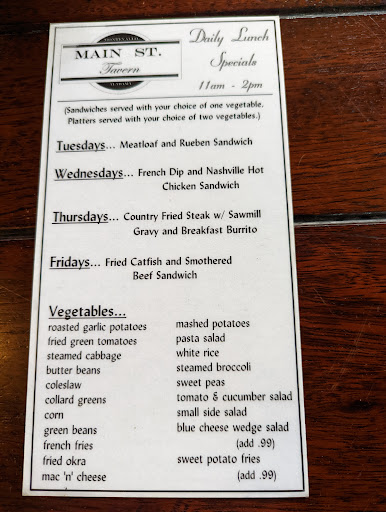 MAIN ST.
Tavern
Daily Lunch
Specials
11am - 2pm
(Sandwiches served with your choice of one vegetable.
Platters served with your choice of two vegetables.)
Tuesdays... Meatloaf and Rueben Sandwich
Wednesdays... French Dip and Nashville Hot
Chicken Sandwich
Thursdays... Country Fried Steak w/ Sawmill
Gravy and Breakfast Burrito
Fridays... Fried Catfish and Smothered
Beef Sandwich
Vegetables...
roasted garlic potatoes
fried green tomatoes
steamed cabbage
butter beans
coleslaw
collard greens
corn
green beans
french fries
fried okra
mac 'n' cheese
mashed potatoes
pasta salad
white rice
steamed broccoli
sweet peas
tomato & cucumber salad
small side salad
blue cheese wedge salad
(add .99)
sweet potato fries
(add .99)